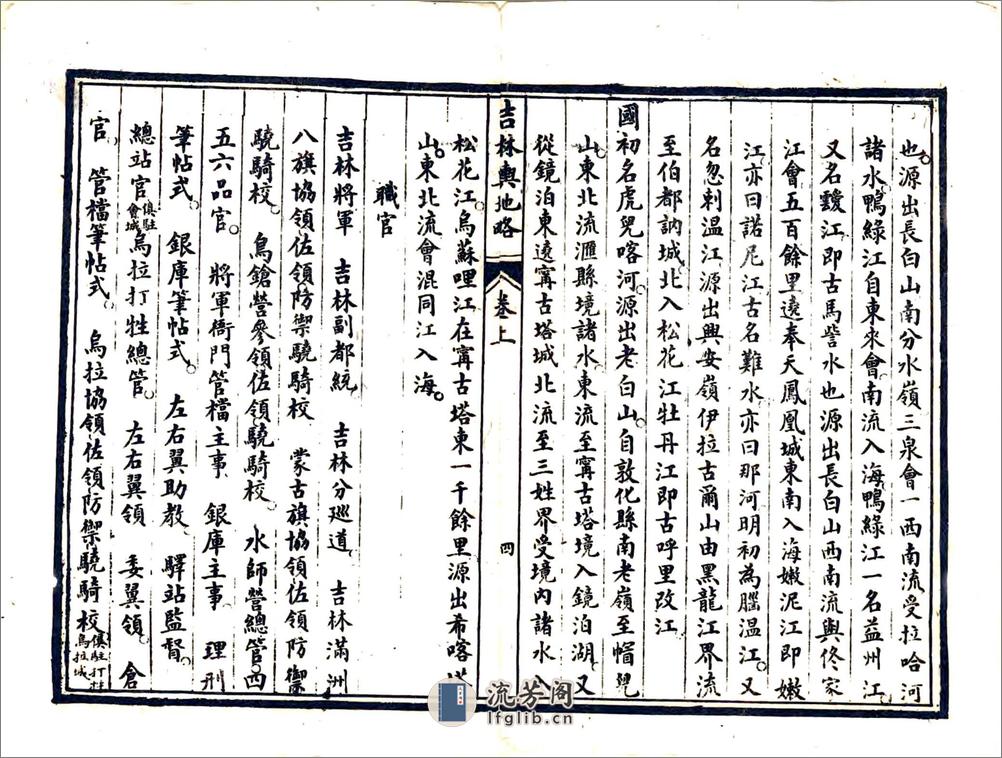 也源出長白山南分水嶺三泉會一西南流受拉哈河
諸水鴨綠江自東來會南流入海鴨綠江一名益州江
又名靉江即古馬訾水也源出長白山西南流與佟家
江會五百餘里遶奉天鳳凰城東南入海嫩泥江即嫩
江亦曰諾尼江古名難水亦曰那河明初為腦溫江又
名忽剌溫江源出興安嶺伊拉古爾山由黑龍江界流
至伯都訥城北入松花江牡丹江即古呼里改江
國初名虎兒喀河源出老白山自敦化縣南老嶺至帽兒
山東北流滙縣境諸水東流至甯古塔境入鏡泊湖又
從鏡泊東遶甯古塔城北流至三姓界受境內諸水入
吉林輿地略
卷上
四
松花江烏蘇哩江在甯古塔東一千餘里源出希喀塔
山東北流會混同江入海
職官
吉林將軍 吉林副都統 吉林分巡道 吉林滿洲
八旗協領佐領防禦驍騎校 蒙古旗協領佐領防禦
驍騎校 鳥鎗營參領佐領驍騎校 水師營總管 四
五六品官 將軍衙門管檔主事 銀庫主事 理刑
筆帖式 銀庫筆帖式 左右翼助教 驛站監督
總站官俱駐會城烏拉打牲總管 左右翼領 委翼領 倉
官 管檔筆帖式 烏拉協領佐領防禦驍騎校俱駐打牲烏拉城
流芳阁
lfglib.cn